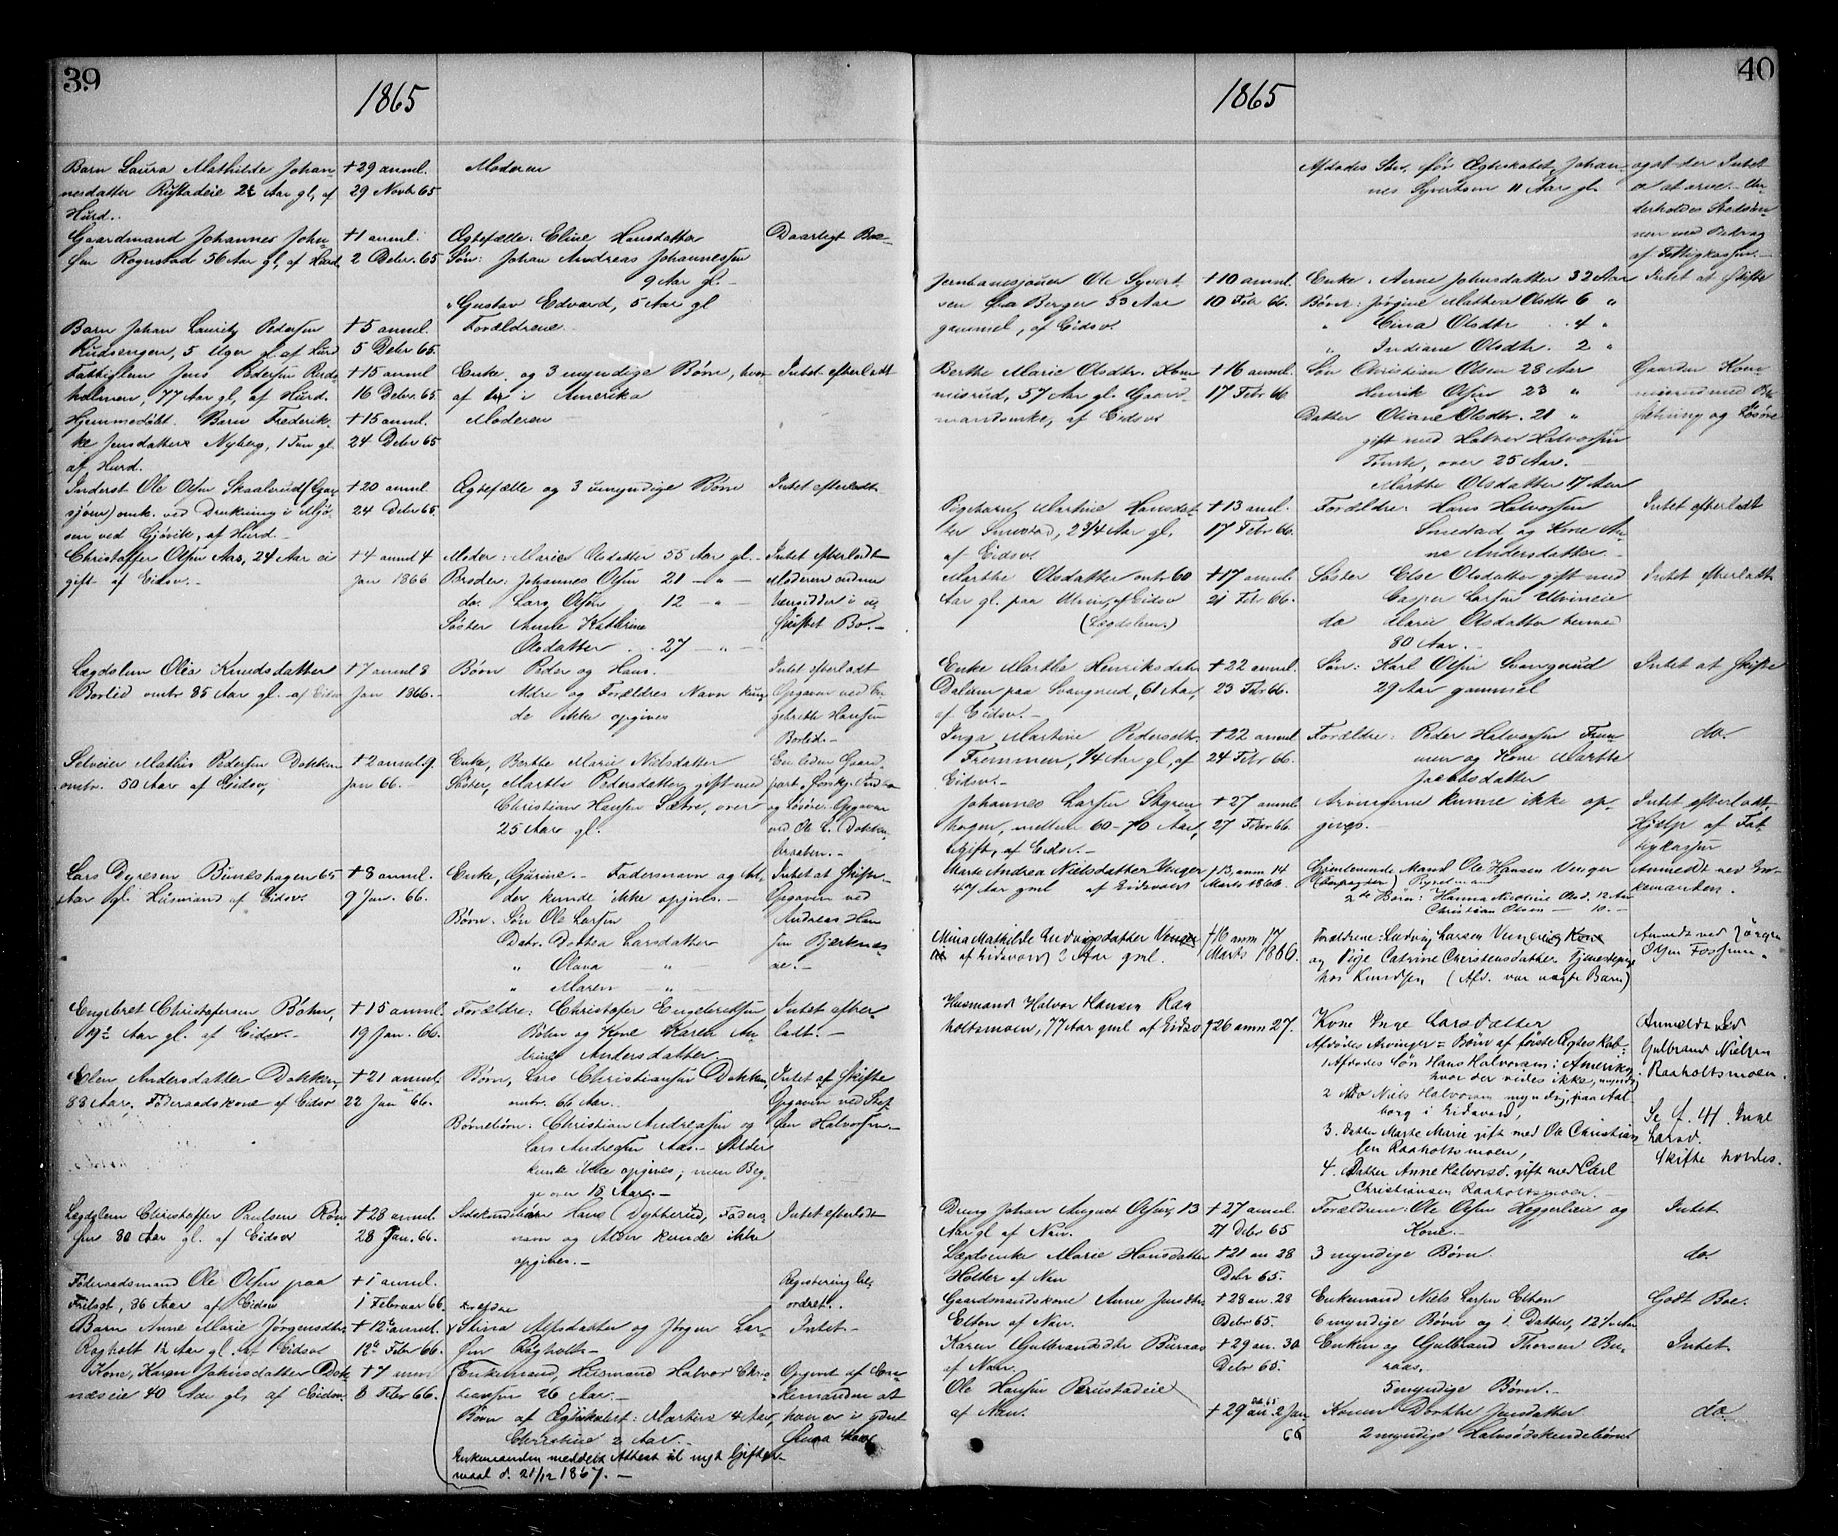 39
1865
Barn Laura Mathilde Johan-
nesdatter Rustadeie 2 Aar gl, af
Hurd.
+29 anml.
29 Novbr 65
Moderen
Gaardmand Johannes John-
sen Rognstad 56 Aar gl, af Hurd.
+1 anml.
2 Debr. 65
Ægtefælle: Eline Hansdatter
Søn: Johan Andreas Johannessen
9 Aar gl.
" Gustav Edvard, 5 Aar gl
Daarligt Boe
Barn Johan Lauritz Pedersen
Rudsengen, 5 Uger gl. af Hurd
+5 anml.
5 Debr 65.
Forældrene
Fattiglem Jens Pedersen
holmen, 77 Aar gl, af Hurd.
+15 anml
16 Debr. 65
Enke og 3 myndige Børn, hvor-
af i Amerika
Intet efterladt
Hjemmedøbt Barn Frederik-
ke Jensdatter Nyberg, 1 gl.
af Hurd.
+15 anml.
24 Debr 65
Moderen
Inderst Ole Olsen Skaalerud
omk. ved Drukning i Mjø-
sen ved Gjøvik, af Hurd.
+20 anml.
24 Debr 65
Ægtefælle og 3 umyndige Børn
Intet efterladt
Christoffer Olsen Aas, 24 Aar ei
gift af Eidsv.
+4 anml 4
Jan 1866
Moder: Marie Olsdatter 55 Aar gl.
Broder: Johannes Olsen 21 - " -
do. Lars Olsen 12 - " -
Søster Anne Kathrine
Olsdatter 27 - " -
Intet efterladt
Moderen
i u-
skiftet Bo.
Lægdslem Olea Knudsdatter
Borlid omtr 85 Aar gl. af Eidsv
+7 anml 8
Jan 1866.
Børn Peder og Hans.
Aldre og Forældres Navn kun-
de ikke opgives
Intet efterladt
Opgaven ved En-
gebrette Hansen
Borlid.
Selveier Mathis Pedersen Dokken
omtr. 50 Aar af Eidsv,
+2 anml 9.
Jan 66.
Enke, Berthe Marie Nielsdatter
Søster, Marthe Pedersdatter gift med
Christian Hansen Sætre, over
25 Aar gl.
En liden Gaard-
part
og Løsøre. Opgaven
ved Ole L. Dokken-
braaten.
Lars Dyresen Bunæshagen 65
Aar gl. Husmand af Eidsv.
+8 anml.
9 Jan. 66.
Enke, Gurine. Fadersnavn og Al-
der kunde ikke opgives.
Børn. Søn Ole Larsen
Datr. Dortea Larsdatter
" Olava - " -
" Maren - " -
Intet at skifte.
Opgaven ved
Andreas Han-
sen Bjerknes-
ie.
Engebret Christophersen Bøhn,
19½ Aar gl. af Eidsv.
+15 anml.
19 Jan. 66.
Forældre: Christofer Engebretsen
Bøhn og Kone Karen An-
drine Andersdatter.
Intet efter-
ladt.
Elen Andersdatter Dokken,
88 Aar, Føderaadskone af Eidsv
+21 anml.
22 Jan 66.
Børn, Lars Christiansen Dokken,
omtr. 66 Aar.
Børnebørn: Christian Andreasen og
Lars Andreasen Aas. Alder
kunde ikke opgives; men Beg-
ge over 18 Aar.
Intet at skifte
Opgaven ved Stef-
fen Halvorsen.
Lægdslem Christoffer Paulsen Røn-
sen 80 Aar gl. af Eidsv
+28 anml.
28 Jan. 66.
Hans Dytterud, Faders-
navn og Alder kunde ikke
opgives.
Intet efterladt
Føderaadsmand Ole Olsen paa
Frilset, 86 Aar af Eidsv
+1 anml.
1 Februar 66.
Registering be-
ordret.
Barn Anne Marie Jørgensdtr.
Ragholt 12 Aar gl. af Eidsv
+12 anml.
12 Febr 66.
Forældre
Stina Alfsdatter og Jørgen Lar-
sen Ragholt
Intet
Kone, Karen Johnsdatter Dok-
næseie 40 Aar gl, af Eidsv.
+7 anm
8 Febr 66.
Enkemand, Husmand Halvor Chris-
tensen 26 Aar.
Børn af Ægteskabet: Martin 4 Aar,
Christine 2 Aar.
Enkemanden meddelt Attest til nyt Gifter-
maal d. 21/12 1867.
Opgivet af En-
kemanden at
han er i
40
1865
Afdødes Søn før Ægteskabet, Johan-
nes Syvertsen 11 Aar gl.
ogat der Intet
er at arve. Un-
derholdes
med Bidrag
af Fattigkassen.
Jernbanesjouer Ole Syvert-
sen fra Berger 33 Aar
gammel, af Eidsv.
+10 anml.
10 Febr 66.
Enke: Anne Johnsdatter 32 Aar
Børn: Jørgine Mathea Olsdtr 6 "
" Lina Olsdtr 4 "
" Indiane Olsdtr. 2 "
Intet at skifte
Berthe Marie Olsdtr. Kom-
misrud, 57 Aar gl. Gaard-
mandsenke, af Eidsv
+16 anml.
17 Febr 66
Søn Christian Olsen 28 Aar
Henrik Olsen 23 "
Datter Oliane Olsdtr. 21 "
gift med Halvor Halvorsen
Tømte, over 25 Aar.
Marthe Olsdatter 17 Aar
Gaarden Kom-
misrud med Be-
sætning og Løsøre
Pigebarn Martine Hansdat-
ter Smestad, 2 3/4 Aar gl.
af Eidsv
+13 anml.
17 Febr 66.
Forældre: Hans Halvorsen
Smestad og Kone An-
ne Andersdatter
Intet efterladt
Marthe Olsdatter omtr 60
Aar gl. paa Ulvin, af Eidsv
(Lægdslem)
+17 anml.
21 Febr 66.
Søster Else Olsdatter gift med
Casper Larsen Ulvineie
do Marie Olsdatter
80 Aar.
Intet efterladt
Enke Marthe Henriksdatr
Dalum paa Svangrud, 61 Aar,
af Eidsv.
+22 anml.
23 Febr 66.
Søn: Karl Olsen Svangrud
29 Aar gammel
Intet at skifte
Inga Martine Pedersdtr
Fremmen, 1/4 Aar gl, af
Eidsv.
+22 anml
24 Febr 66.
Forældre: Peder Halvorsen Frem-
men og Kone Marthe
Jacobsdatter
do.
Johannes Larsen Styren-
hagen, mellem 60-70 Aar,
Ugift, af Eidsv.
+27 anml
27 Febr 66.
Arvingerne kunne ikke op-
gives.
Intet efterladt,
Hjælp af Fat-
tigkassen
Marte Andrea Nielsdatter Venger
47 Aar gml af Eidsvold
+13, anm 14
Marts 1866.
Gjenlevende Mand Ole Hansen Venger
2de Børn: Hanna Nicoline Olsd. 12 Aar
Christian Olsen - 10. -
Anmeldt ved En-
kemanden.
Mina Mathilde Ludvigsdatter Venger
af Eidsvold 2 Aar gml.
+16 anm 17
Marts 1866.
Forældrene: Ludvig Larsen Venger og Kone
og Pige Catrine Christensdatter Tjenestepige
hos Knudsen (Afd. var uægte Barn)
Anmeldt ved Jørgen
Olsen
Husmand Halvor Hansen Raa-
holtsmoen, 77 Aar gml af Eidsv
+26 anm 27.
Kone Inge Larsdatter
Afdødes Arvinger = Børn af første Ægteskab:
1 Afdødes Søn Hans Halvorsen i Amerika,
hvor der vides ikke, myndig
2 do Niels Halvorsen myndig, paa Aal-
borg i Eidsvold,
3. Datter Marte Marie gift med Ole Christian-
sen Raaholtsmoen,
4. Datter Anne Halvorsd. gift med Carl
Christiansen Raaholtsmoen.
Anmeldt ved
Gulbrand Nielsen
Raaholtsmoen.
Se f. 41. Inge
Larsd.
Skifte holdes.
Dreng Johan August Olsen, 13
Aar gl af Nan.
+27 anml.
27 Debr 65
Forældrene: Ole Olsen Heggerlieie og
Kone.
Intet
Lægdsenke Marie Hansdatter
Holter af Nan
+21 an 28
Debr 65.
3 myndige Børn.
do
Gaardmandskone Anne Jensdtr.
Elton af Nan.
+28 an. 28
Debr 65.
Enkemand Niels Larsen Elton
6 myndige Børn og 1 Datter, 12½ Aar
Godt Boe.
Karen Gulbrandsdtr Buraas
af Nan.
+29 an. 30
Debr 65.
Enken og Gulbrand Thorsen Bu-
raas.
5 myndige Børn.
Intet
Ole Hansen Perustadeie
af Nan.
+29 Debr 65 an. 2 Jan
66
Konen Dorthe Jensdatter
2 myndige Halvsødskendebørn
do